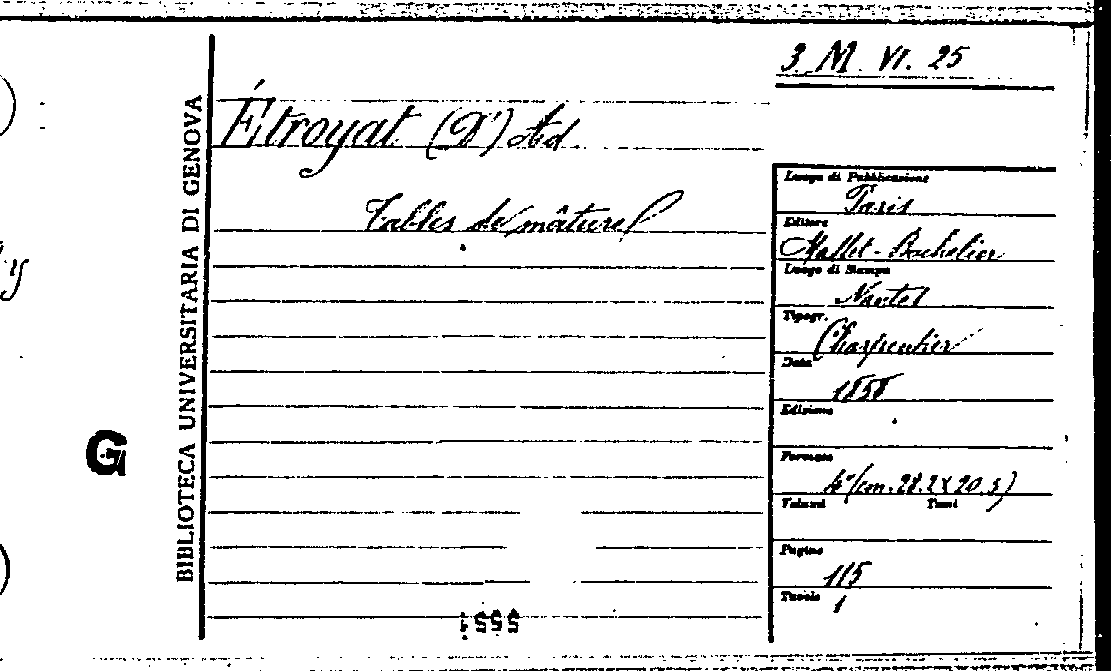 3 M. VI. 25
Étroyat (D') Ad.
Tables de mâture
BIBLIOTECA UNIVERSITARIA DI GENOVA
G
Luogo di Pubblicazione
Paris
Editore
Mallet-Bachelier
Luogo di Stampa
Nantes
Tipogr.
Charpentier
Data
1858
Edizione
Formato
4° (cm. 28.2 x 20.5)
Volumi Tomi
Pagine
115
Tavole
1